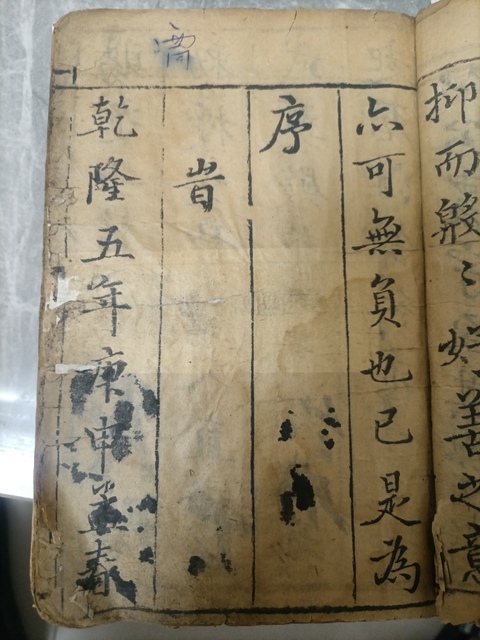 抑而殷〻好善之意
亦可無負也已是為
序
旹
乾隆五年庚申孟春